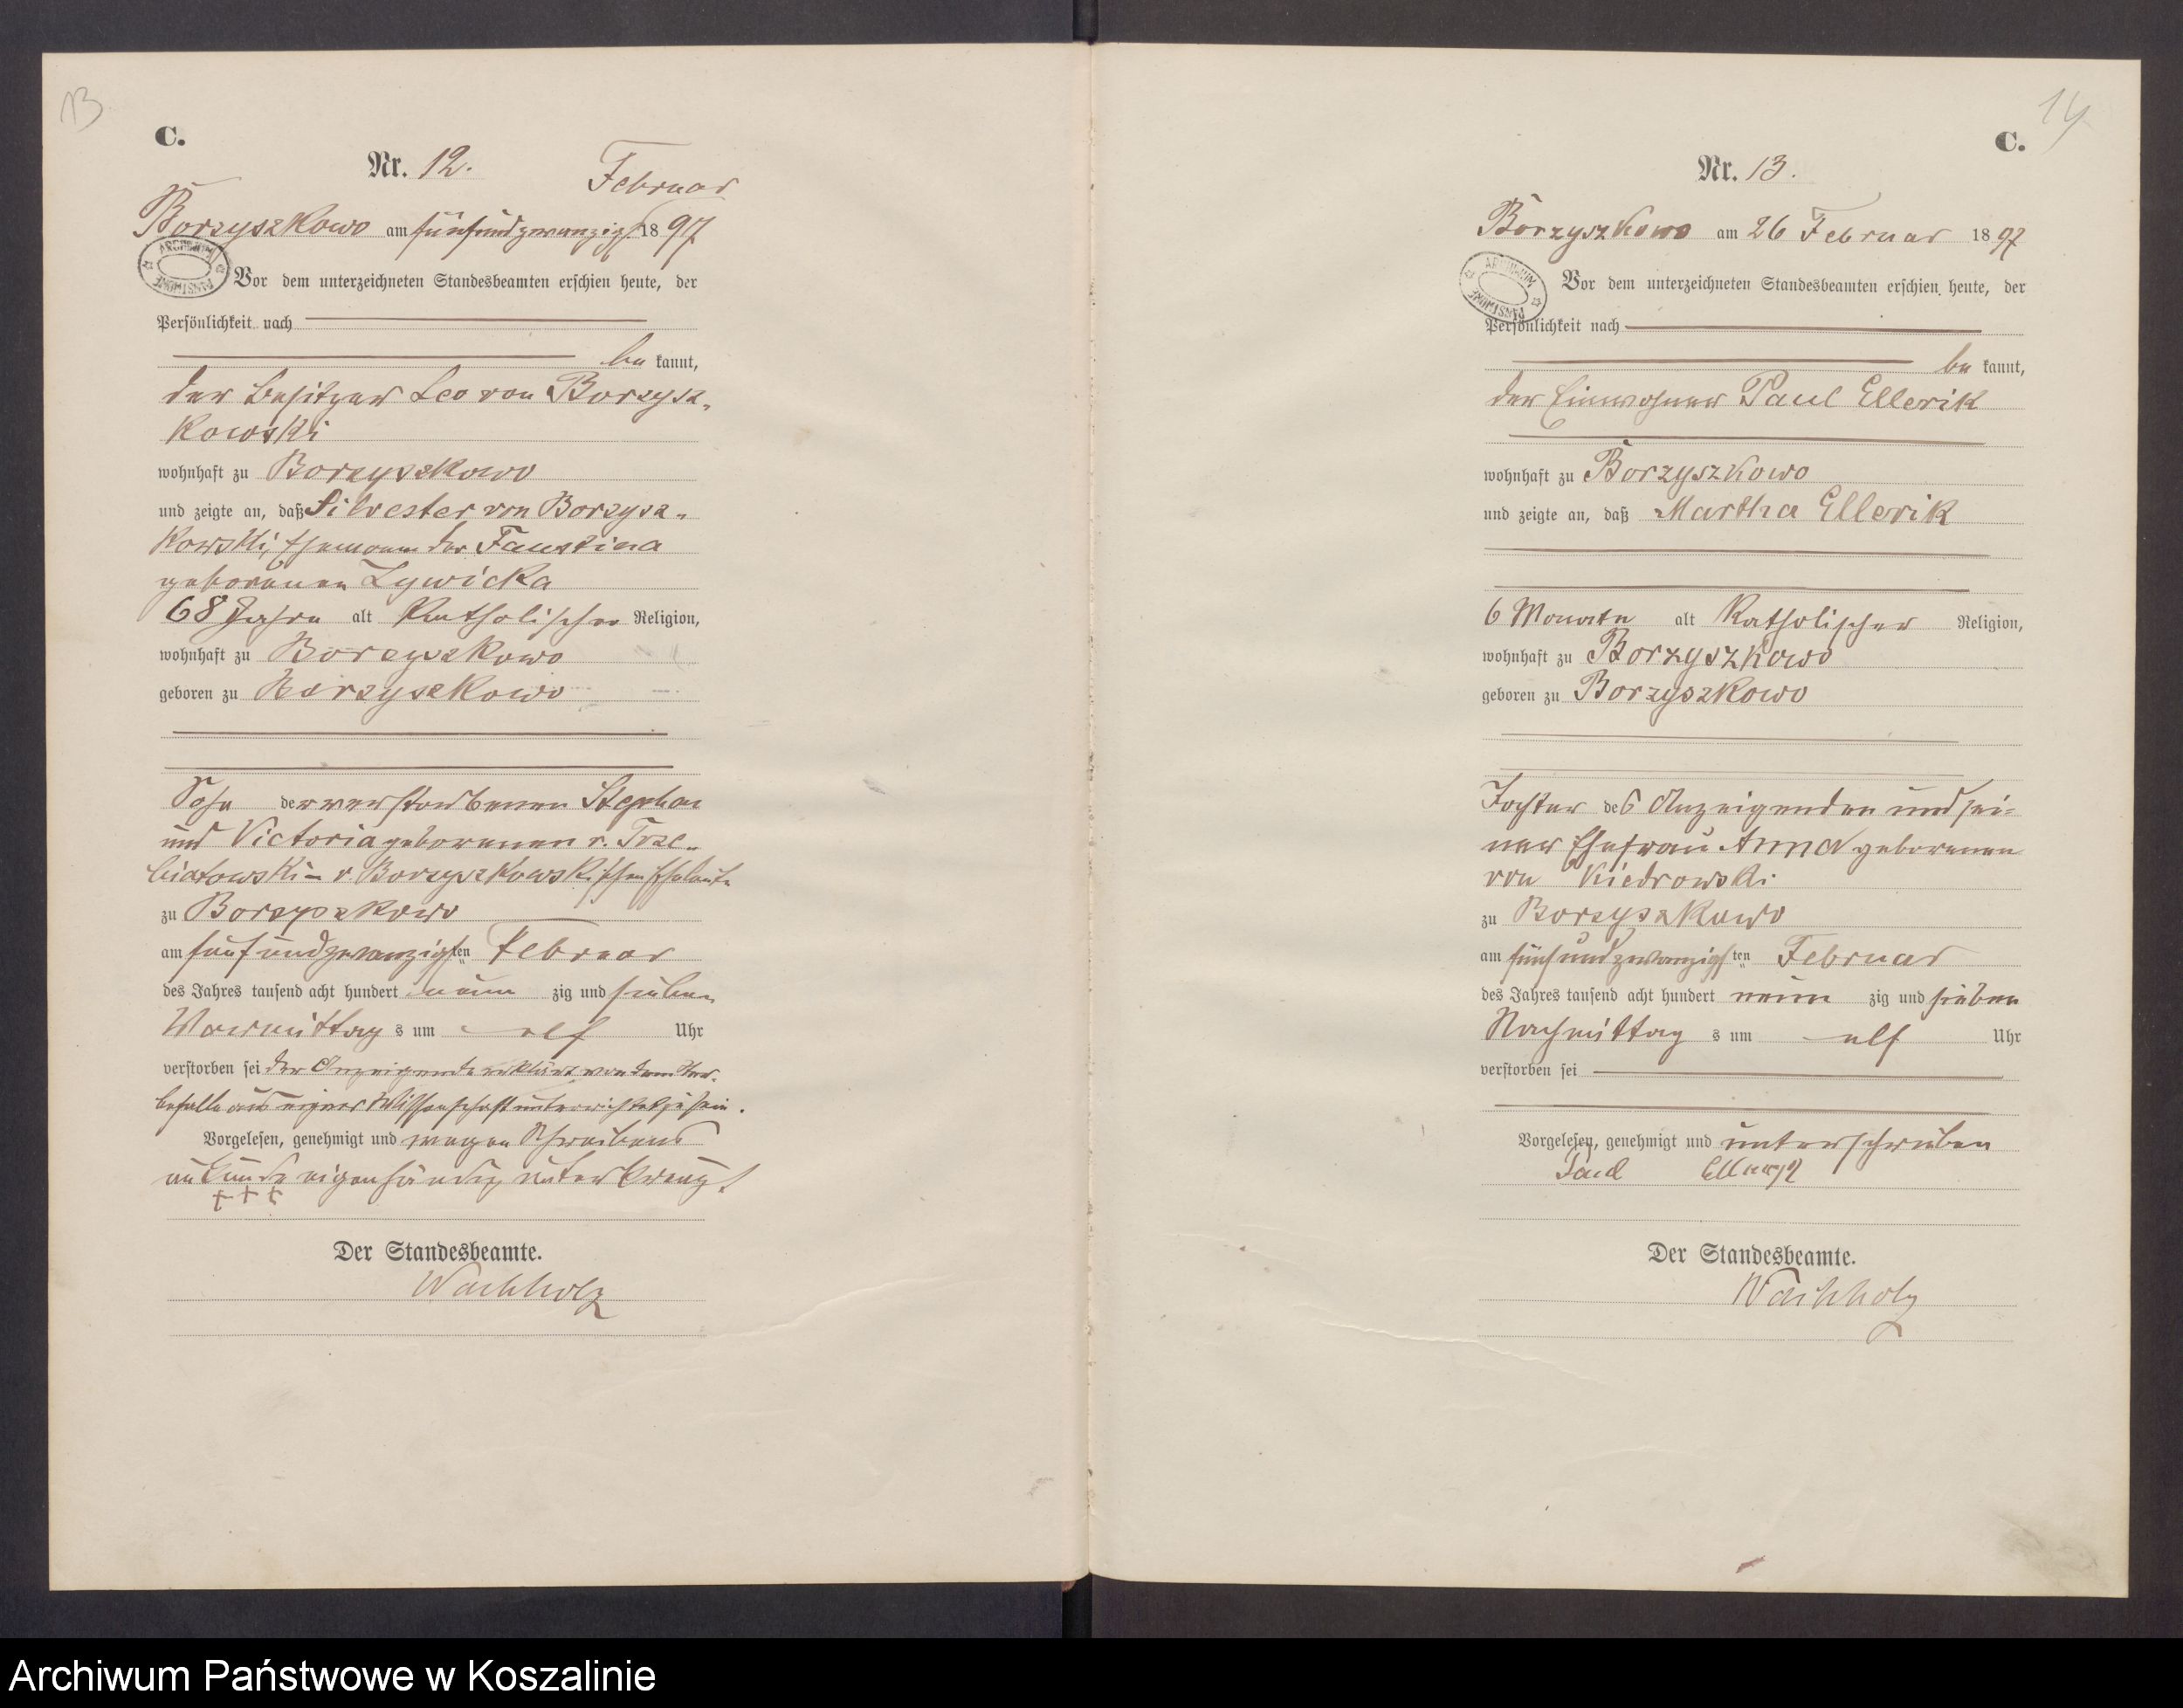 13
C.
Nr. 12.
Februar
Borzyszkowo am fünfundzwanzigst. 1897
ARCHIWUM PAŃSTWOWE
Vor dem unterzeichneten Standesbeamten erschien heute, der
Persönlichkeit nach
be kannt,
der Besitzer Leo von Borzysz-
kowski
wohnhaft zu Borzyszkowo
und zeigte an, daß Silvester von Borzysz-
kowski, Ehemann der Faustina
geborenen Zywicka
68 Jahre alt katholischer Religion,
wohnhaft zu Borzyszkowo
geboren zu Borzyszkowo
Sohn der verstorbenen Stephan
und Victoria geborenen v. Trze-
biatowski- v. Borzyszkowskischen Eheleute
zu Borzyszkowo
am fünfundzwanzigsten Februar
des Jahres tausend acht hundert neun zig und sieben
Vormittag s um elf Uhr
verstorben sei der Anzeigende erklärt von dem Ster-
befalle aus eigner Wissenschaft unterrichtet zu sein.
Vorgelesen, genehmigt und wegen Schreibens
unkunde eigenhändig unterkreuzt
+++
Der Standesbeamte.
Wachholz
14
C.
Nr. 13.
Borzyszkowo am 26 Februar 1897
ARCHIWUM PAŃSTWOWE
Vor dem unterzeichneten Standesbeamten erschien heute, der
Persönlichkeit nach
be kannt,
der Einwohner Paul Ellerik
wohnhaft zu Borzyszkowo
und zeigte an, daß Martha Ellerik
6 Monate alt katholischer Religion,
wohnhaft zu Borzyszkowo
geboren zu Borzyszkowo
Tochter des Anzeigenden und sei-
ner Ehefrau Anna geborenen
von Kiedrowski
zu Borzyszkowo
am fünfundzwanzigsten Februar
des Jahres tausend acht hundert neun zig und sieben
Nachmittag s um elf Uhr
verstorben sei
Vorgelesen, genehmigt und unterschrieben
Paul
Der Standesbeamte.
Wachholz
Archiwum Państwowe w Koszalinie